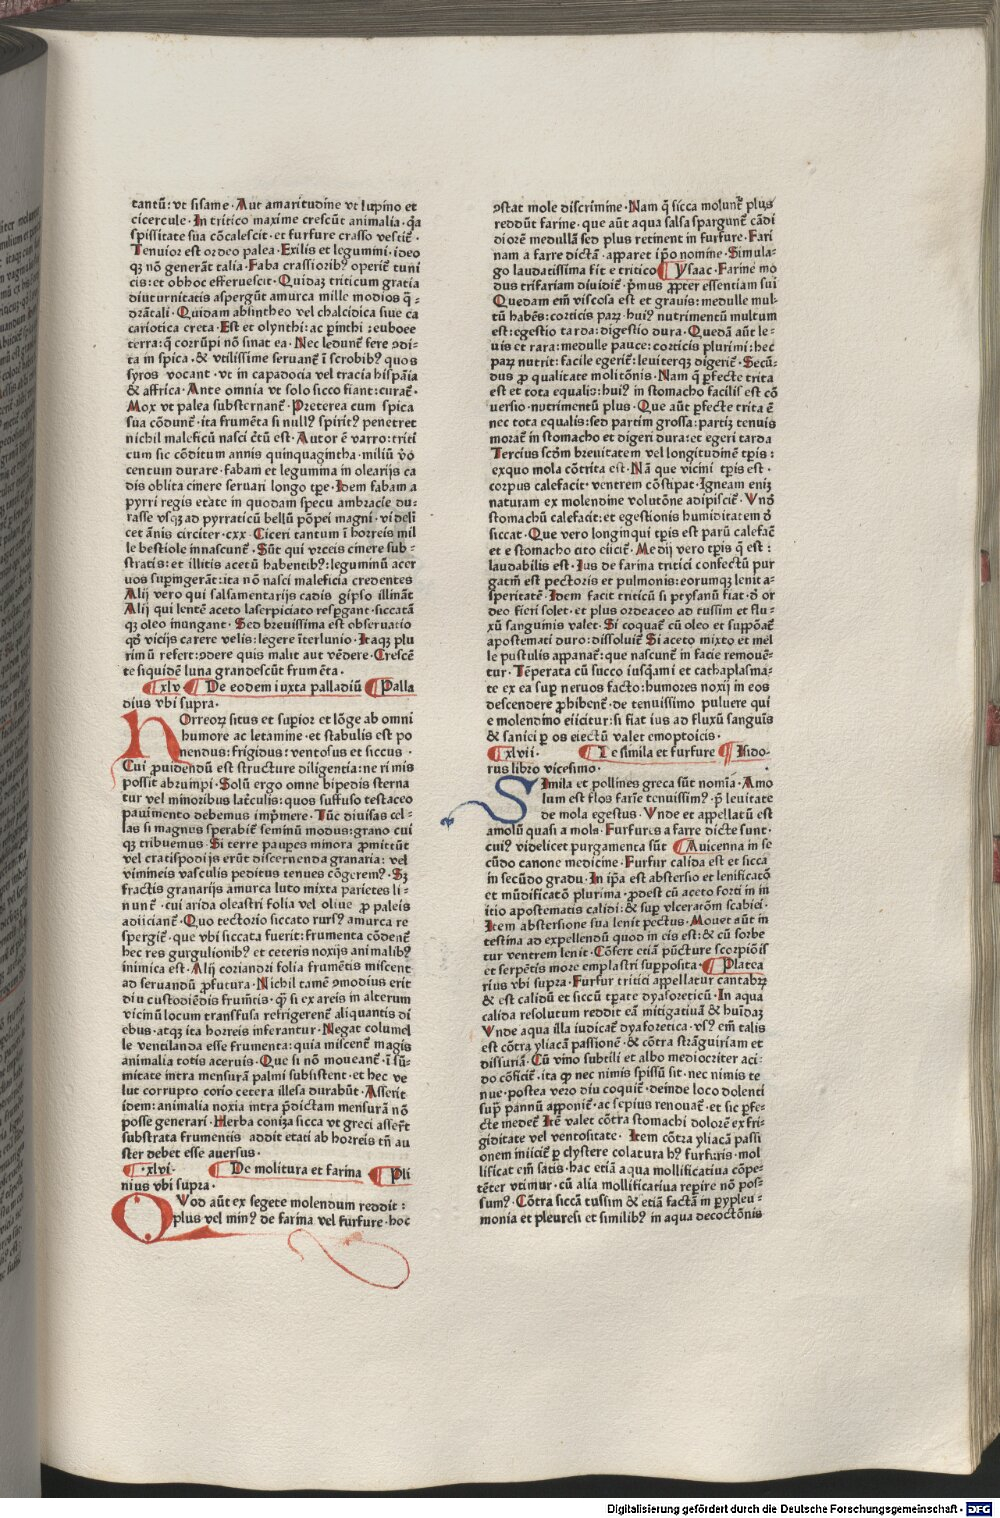 tantū: vt sisame · Aut amaritudine vt lupino et
cicercule · In tritico maxime crescūt animalia · q̄a
spissitate sua cōcalescit · et furfure crasso vestit̄ ·
Tenuior est ordeo palea · Exilis et legumini · ideo
qꝫ nō generāt talia · Faba crassiorib⁹ operit̄ tuni
cis: et obhoc efferuescit · Quidaꝫ triticum gratia
diuturnitatis aspergūt amurca mille modios q̄-
drātali · Quidam absintheo vel chalcidica siue ca
cariotica creta · Est et olynthi: ac ꝑinthi : euboee
terra: q̄ corrūpi nō sinat ea · Nec ledunt̄ fere ꝯdi-
ta in spica · & vtilissime seruant̄ ī scrobib⁹ quos
syros vocant · vt in capadocia vel tracia hispāia
& affrica · Ante omnia vt solo sicco fiant: curat̄ ·
Mox vt palea substernant̄ · Preterea cum spica
sua cōdunt̄ · ita frumēta si null⁹ spirit⁹ penetret
nichil maleficū nasci c̄tū est · Autor ē varro: triti
cum sic cōditum annis quinquagintha · miliū v̄o
centum durare · fabam et legumina in olearijs ca
dis oblita cinere seruari longo tꝑe · Idem fabam a
pyrri regis etate in quodam specu ambracie du-
rasse vsqꝫ ad pyrraticū bellū pōpei magni · videli
cet ānis circiter · cxx · Ciceri tantum ī horreis mil
le bestiole innascunt̄ · Sūt qui vrceis cinere sub-
stratis: et illitis acetū habentib⁹: leguminū acer
uos suꝑingerāt: ita nō nasci maleficia credentes
Alij vero qui salsamentarijs cadis gipso illināt
Alij qui lentē aceto laserpiciato resꝑgant · siccatā
qꝫ oleo inungant · Sed breuissima est obseruatio
qd̄ vicijs carere velis: legere īterlunio · Itaqꝫ plu
rimū refert: ꝯdere quis malit aut vēdere · Crescē
te siquidē luna grandescūt frumēta ·
xlv · De eodem iuxta palladiū Palla
dius vbi supra ·
Horreoꝝ situs et suꝑior et lōge ab omni
humore ac letamine · et stabulis est po
nendus: frigidus: ventosus et siccus ·
Cui ꝓuidendū est structure diligentia: ne ri mis
possit abrumpi · Solū ergo omne bipedis sterna
tur vel minoribus lat̄culis: quos suffuso testaceo
pauimento debemus imp̄mere · Tūc diuisas cel-
las si magnus speratu͛ seminū modus: grano cui
qꝫ tribuemus · Si terre pauꝑes minora ꝓmittūt
vel cratispodijs erūt discernenda granaria: vel
vimineis vasculis peditus tenues cōgerem⁹ · Sꝫ
fractis granarijs amurca luto mixta parietes li-
nunt̄ · cui arida oleastri folia vel oliue ꝓ paleis
adiiciant̄ · Quo tectorio siccato rurs⁹ amurca re
spergit̄ · que vbi siccata fuerit: frumenta cōdent̄
hec res gurgulionib⁹ et ceteris noxijs animalib⁹
inimica est · Alij coriandri folia frumētis miscent
ad seruandū ꝓfutura · Nichil tamē ꝯmodius erit
diu custodiēdis frum̄tis · q̄ si ex areis in alterum
vicinū locum transfusa refrigerent̄ aliquantis di
ebus · atqꝫ ita horreis inferantur · Negat columel
le ventilanda esse frumenta: quia miscent̄ magis
animalia totis aceruis · Que si nō moueant̄ · ī sū-
mitate intra mensurā palmi subsistent · et hec ve
lut corrupto corio cetera illesa durabūt · Asserit
idem: animalia noxia intra p̄dictam mensurā nō
posse generari · Herba coniza sicca vt greci asser̄t
substrata frumentis addit etati ab horreis tn̄ au
ster debet esse auersus ·
· xlvi · De molitura et farina Pli
nius vbi supra ·
Quod aūt ex segete molendum reddit :
plus vel min⁹ de farina vel furfure · hoc
ꝯstat mole discrimine · Nam q̄ sicca molunt̄ plus
reddūt farine · que aūt aqua salsa spargunt̄ cādi
diorē medullā sed plus retinent in furfure · Fari
nam a farre dictā · apparet ip̄o nomine · Simula-
go laudatissima fit e tritico Ysaac · Farine mo
dus trifariam diuidit̄ · p̄mus ꝓpter essentiam sui
Quedam em̄ viscosa est et grauis: medulle mul-
tū habēs: corticis parꝫ · hui⁹ nutrimentū multum
est: egestio tarda: digestio dura · Quedā aūt le-
uis et rara: medulle pauce: corticis plurimi: hec
parꝫ nutrit: facile egerit̄: leuiterqꝫ digerit̄ · Secū-
dus ꝓ qualitate molitōnis · Nam q̄ ꝑfecte trita
est et tota equalis: hui⁹ in stomacho facilis est cō
uersio · nutrimentū plus · Que aūt ꝑfecte trita ē
nec tota equalis: sed partim grossa: partiꝫ tenuis
morat̄ in stomacho et digeri dura: et egeri tarda
Tercius scd̄m breuitatem vel longitudinē tꝑis :
exquo mola cōtrita est · Nā que vicini tꝑis est ·
corpus calefacit · ventrem cōstipat · Igneam eniꝫ
naturam ex molendine volutōne adipiscit̄ · Vnd̄
stomachū calefacit: et egestionis humiditatem d̄
siccat · Que vero longinqui tꝑis est parū calefac̄
et e stomacho cito eiicit̄ · Medij vero tꝑis q̄ est :
laudabilis est · Ius de farina tritici confectū pur
gatiū est pectoris et pulmonis: eorumqꝫ lenit a-
speritatē · Idem facit triticū si ptysanū fiat · d̄ or
deo fieri solet · et plus ordeaceo ad tussim et flu-
xū sanguinis valet · Si coquat̄ cū oleo et suppōat̄
apostemati duro: dissoluit̄ Si aceto mixto et mel
le pustulis appanat̄: que nascunt̄ in facie remouē-
tur · Tēperata cū succo iusq̄ami et cathaplasma-
te ex ea suꝑ neruos facto: humores noxij in eos
descendere ꝓhibent̄ · de tenuissimo puluere qui
e molendino eiicitur: si fiat ius ad fluxū sanguīs
& saniei ꝑ os eiectū valet emoptoicis ·
xlvii · De simila et furfure Isido-
rus libro vicesimo ·
Simila et pollines greca sūt nomīa · Amo
lum est flos farīe tenuissim⁹ · p̄ leuitate
de mola egestus · Vnde et appellatū est
amolū quasi a mola · Furfures a farre dicte sunt ·
cui⁹ videlicet purgamenta sūt Auicenna in se
cūdo canone medicine · Furfur calida est et sicca
in secūdo gradu · In ip̄a est abstersio et lenificatō
et mūdificatō plurima · ꝓdest cū aceto forti in in
itio apostematis calidi: & suꝑ vlceratōm scabiei ·
Item abstersione sua lenit pectus · Mouet aūt in
testina ad expellendū quod in eis est: & cū sorbe
tur ventrem lenit · Cōfert etiā pūcture scorpiōis
et serpētis more emplastri suꝑposita · Platea
rius vbi supra · Furfur tritici appellatur cantabrꝫ
& est calidū et siccū tꝑate dyaforeticū · In aqua
calida resolutum reddit eā mitigatiuā & humidaꝫ
Vnde aqua illa iudicat̄ dyaforetica · vs⁹ em̄ talis
est cōtra yliacā passionē · & cōtra strāguiriam et
dissuriā · Cū vino subtili et albo mediocriter aci-
do cōficit̄ · ita ꝙ nec nimis spissū sit · nec nimis te
nue · postea vero diu coquit̄ · deinde loco dolenti
suꝑ pannū apponit̄ · ac sepius renouat̄ · et sic ꝑfe-
cte medet̄ Itē valet cōtra stomachi dolorē ex fri-
giditate vel ventositate · Item cōtra yliacā passi
onem iniicit̄ ꝑ clystere colatura h⁹ furfuris · mol
lificat em̄ satis · hac etiā aqua mollificatiua cōpe-
tēter vtimur · cū alia mollificatiua reperire nō pos-
sum⁹ · Cōtra siccā tussim & etiā factā in ꝑypleu-
monia et pleuresi et similib⁹ in aqua decoctōnis
Digitalisierung gefördert durch die Deutsche Forschungsgemeinschaft · DFG